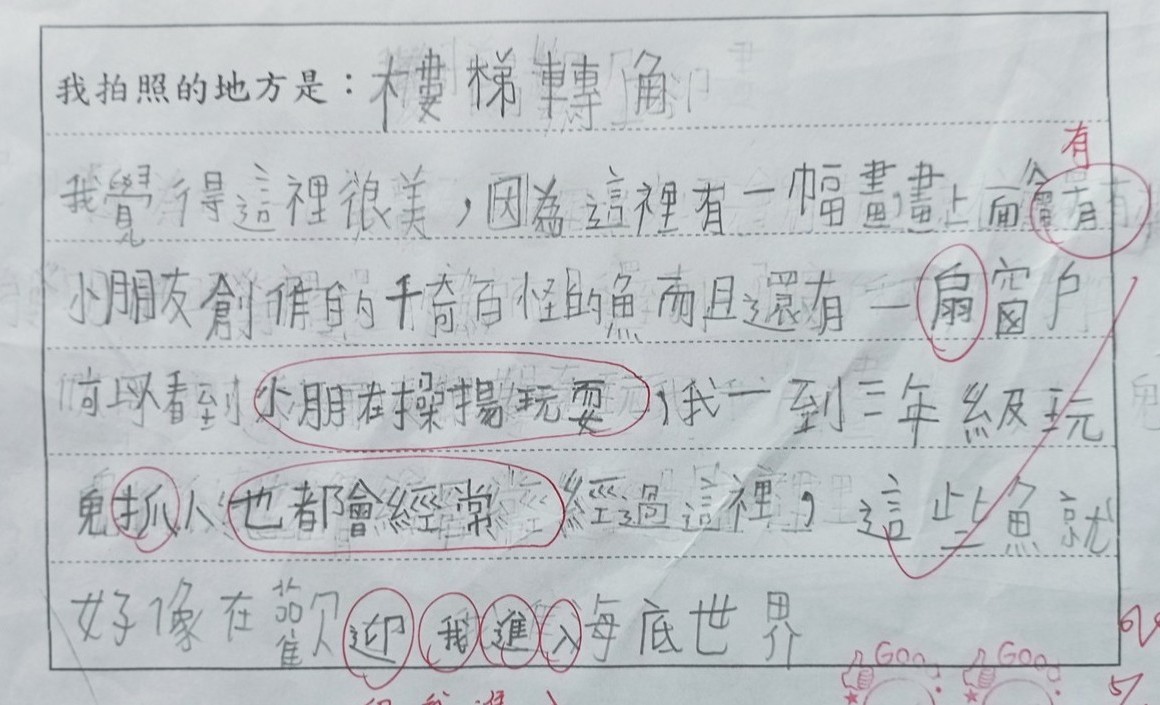 我拍照的地方是：樓梯轉角
有
我覺得這裡很美，因為這裡有一幅畫，畫上面會有
小朋友創作的千奇百怪的魚而且還有一扇窗戶
可以看到小朋在操場玩耍，我一到三年級玩
鬼抓人也都會經常經過這裡，這些魚就
好像在歡迎我進入海底世界
Good Good